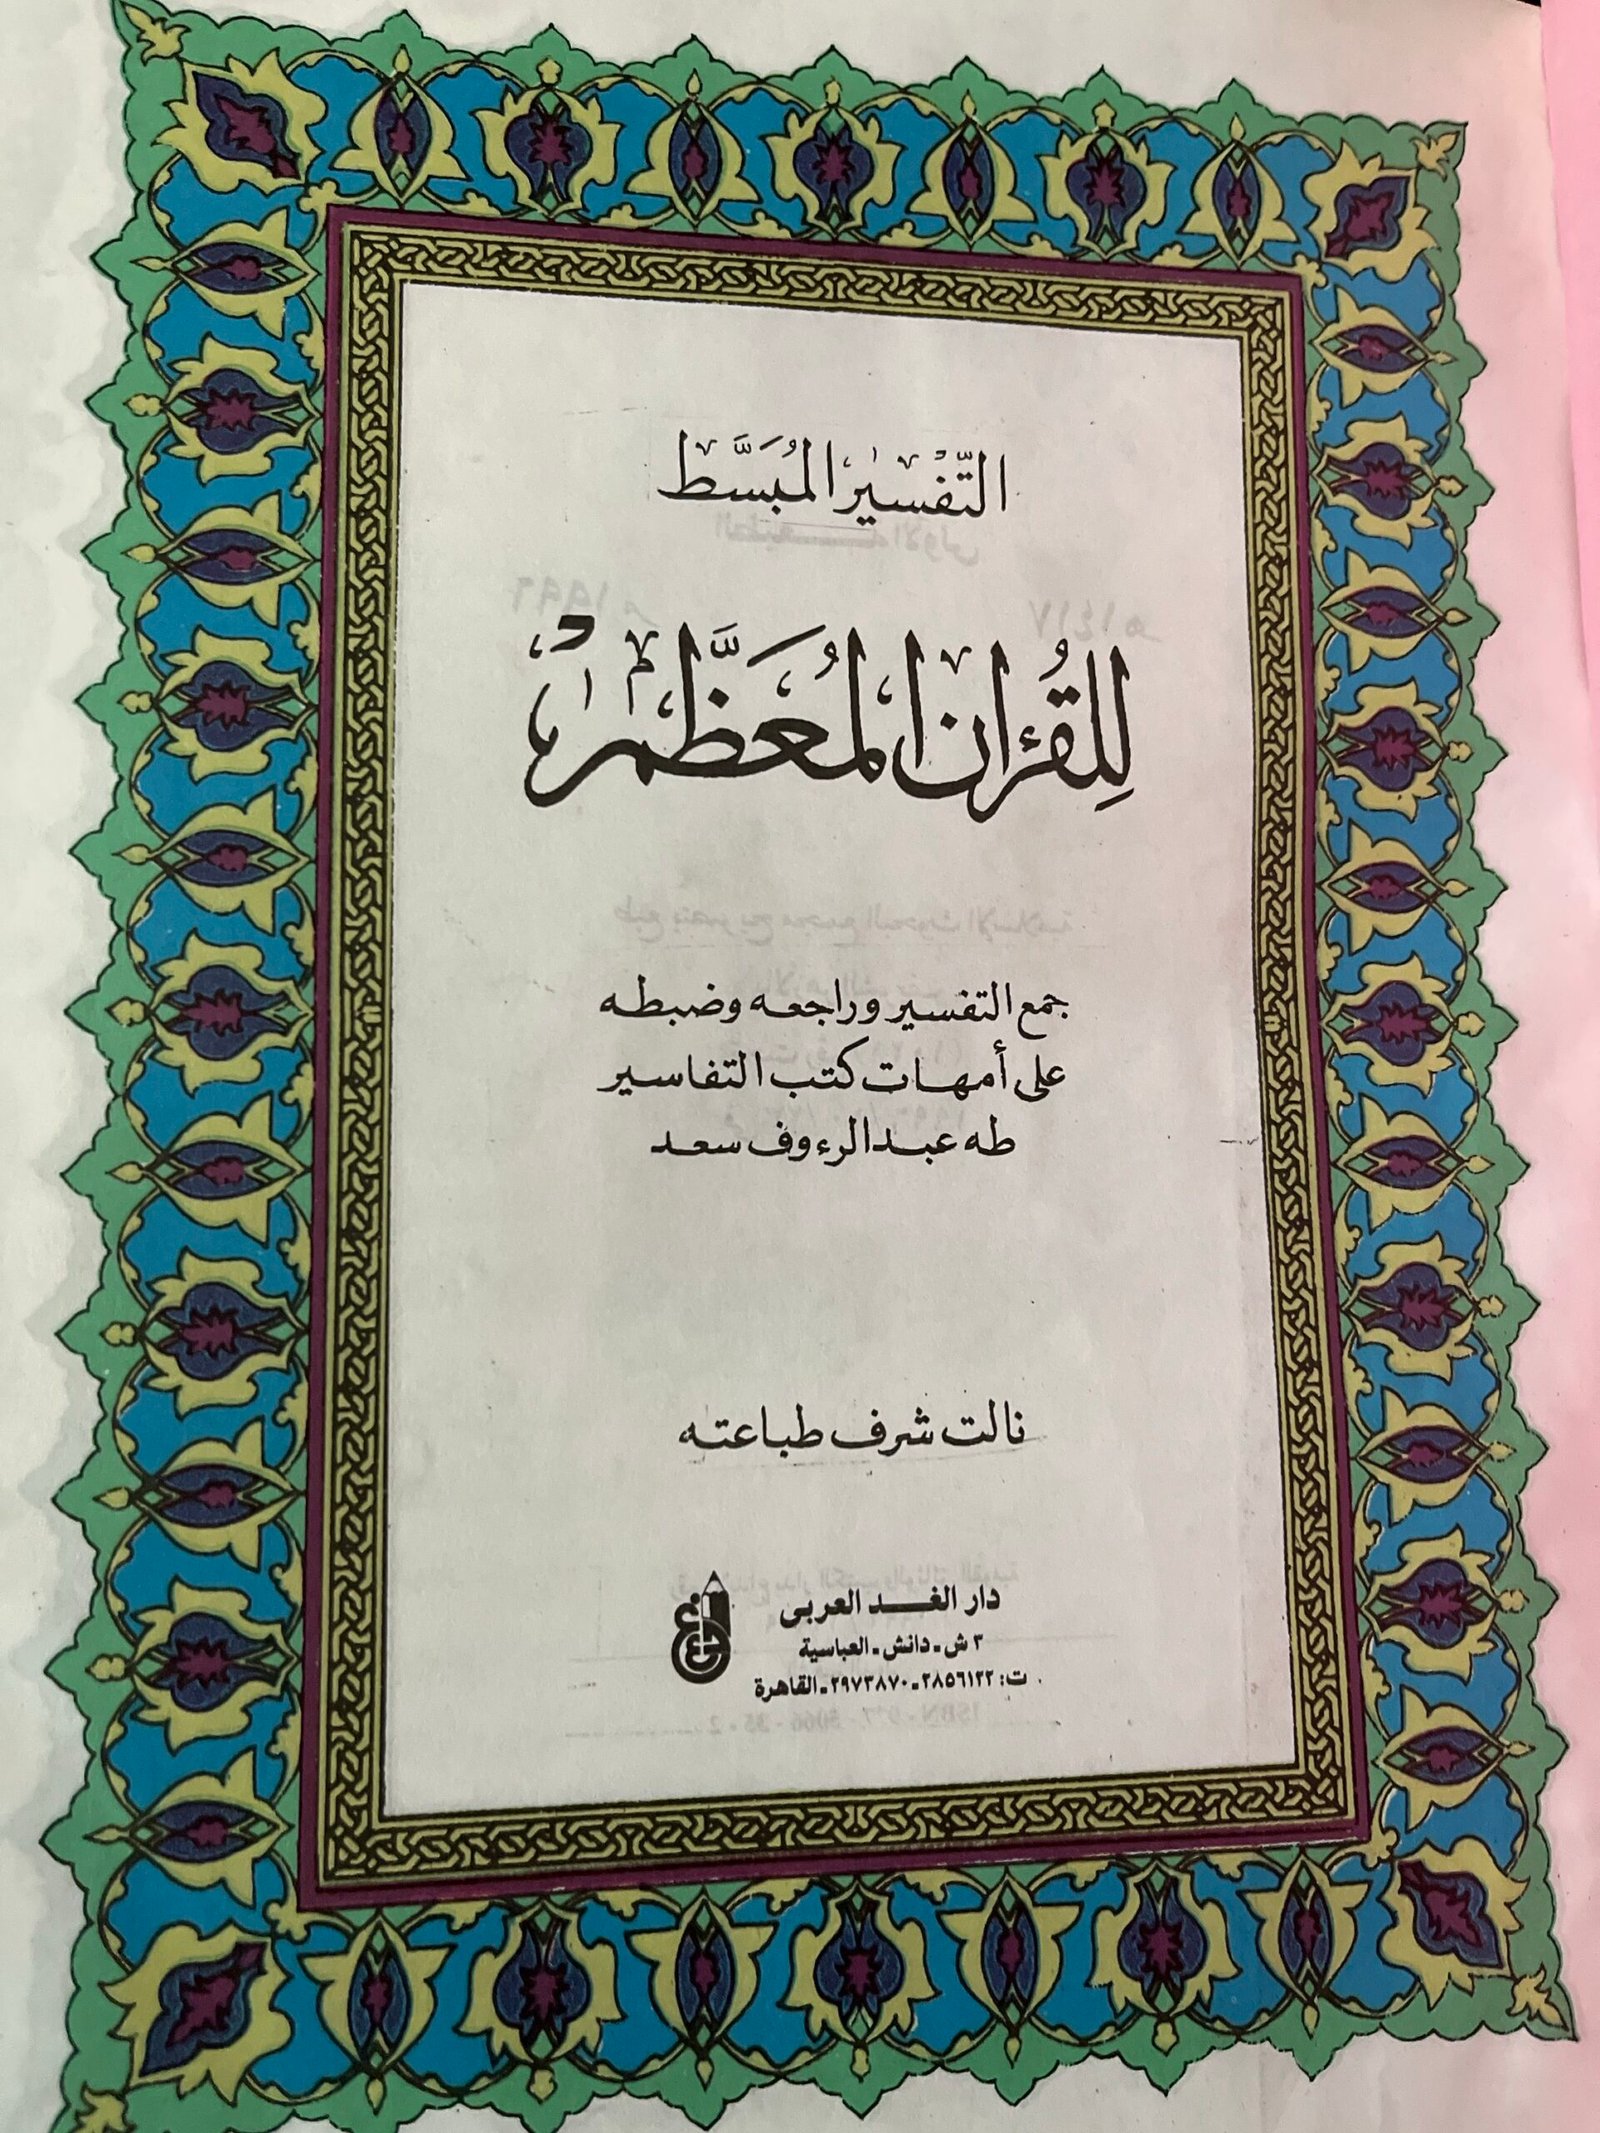 التَّفْسِيرُ المُبَسَّط
لِلقُرْءَانِ المُعَظَّمِ
جمع التفسير وراجعه وضبطه
على أمهات كتب التفاسير
طه عبد الرءوف سعد
نالت شرف طباعته
دار الغد العربى
٣ ش ـ دانش ـ العباسية
ت: ٢٨٥٦١٢٢ ـ ٢٩٧٣٨٧٠ ـ القاهرة